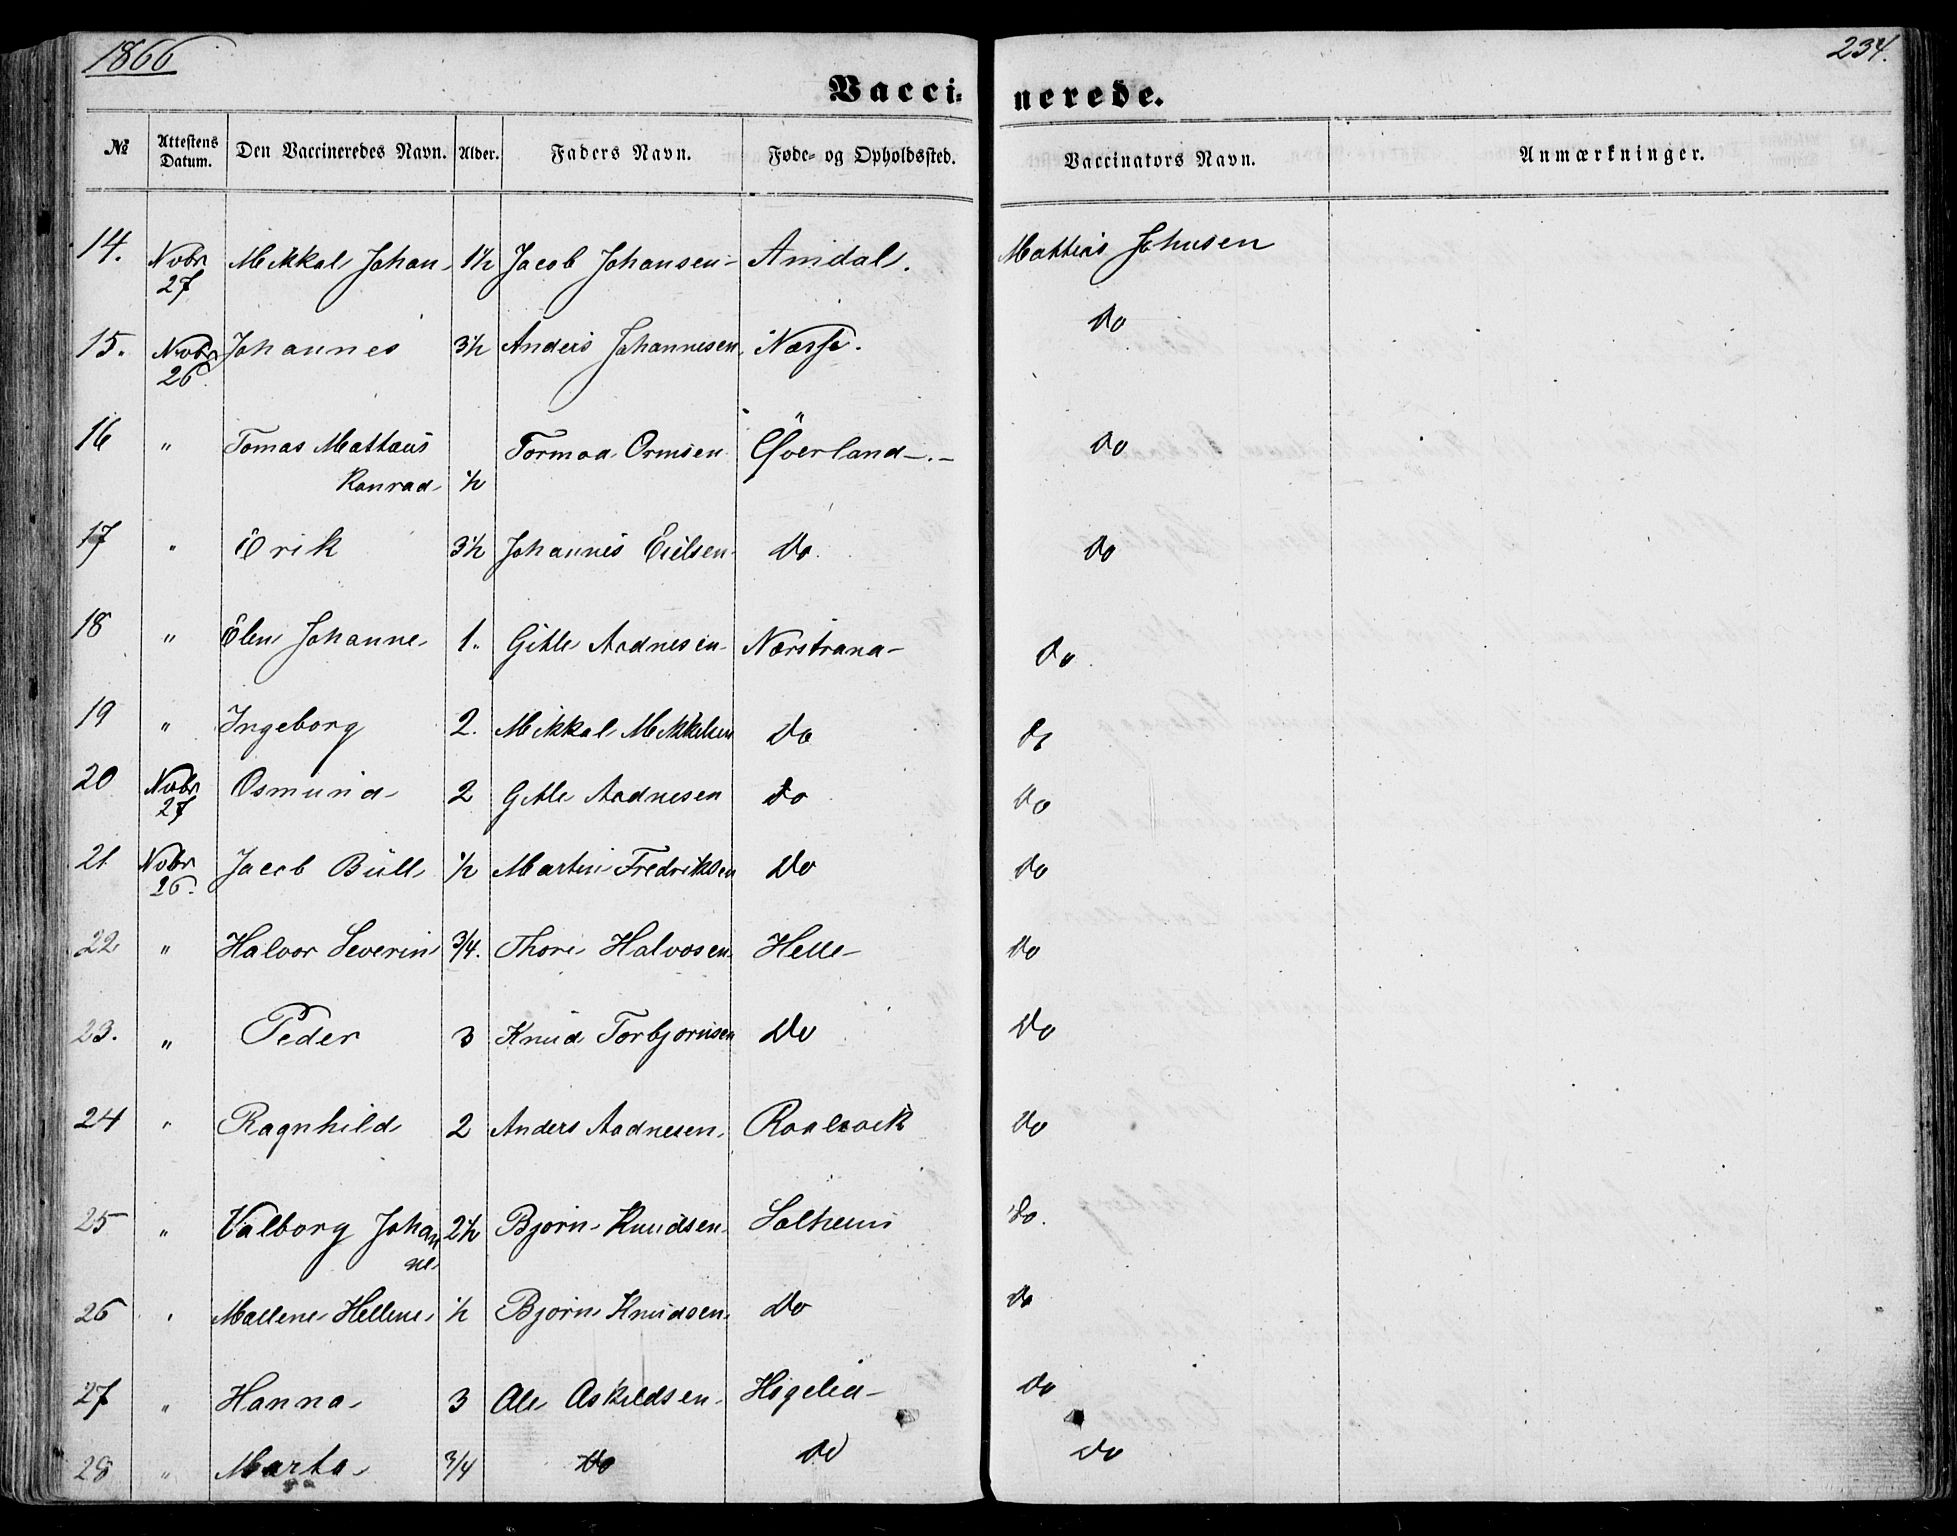 1866
234.
Vaccinerede.
№ | Attestens Datum. | Den Vaccineredes Navn. | Alder. | Faders Navn. | Føde- og Opholdssted. | Vaccinators Navn. | Anmærkninger.
14. | Nvbr 27 | Mikkal Johan | 1½ | Jacob Johansen | Amdal. | Mattias Johnsen
15. | Nvbr 26. | Johannes | 3½ | Anders Johannesen | Næsse. | Do
16 | " | Tomas Mattæus Konrad | ½ | Tormod Ormsen | Øverland | Do
17 | " | Erik | 3½ | Johannes Eielsen | Do. | Do
18 | " | Elen Johanne | 1. | Gitle Aadnesen | Nærstrand | Do.
19 | " | Ingeborg | 2. | Mikkal Mikkelsen | Do | Do
20 | Nvbr 27 | Osmund | 2 | Gitle Aadnesen | Do | Do
21 | Nvbr 26. | Jacob Büll | ½ | Martin Fredriksen | Do | Do
22 | " | Halvor Severin | 3/4. | Thore Halvosen | Helle | Do
23. | " | Peder | 3 | Knud Torbjornsen | Do | Do
24 | " | Ragnhild | 2 | Anders Aadnesen | | Do
25 | " | Valborg Johanne | 2½ | Bjorn Knudsen | Solheim | Do.
26 | " | Mallene Hellene | ½ | Bjorn Knudsen | Do | Do
27 | " | Hanna | 3 | Ole Askildsen | Hogelia | Do
28 | " | Marta | 3/4 | Do | Do | Do